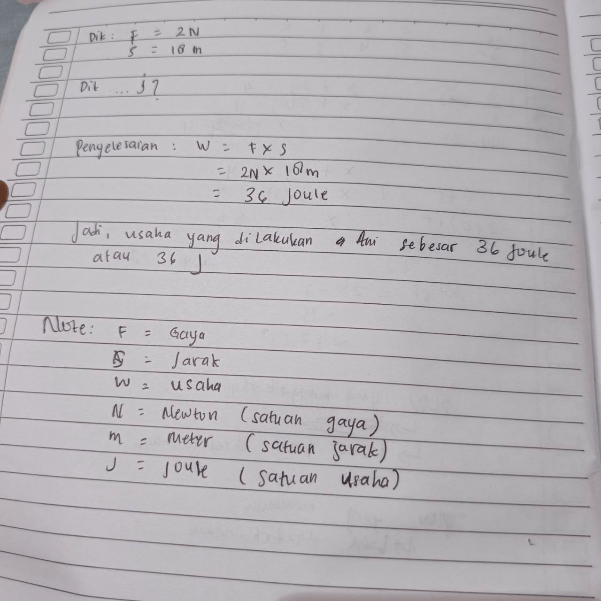 Dik : F = 2N
S = 18 m
Dit ... j?
Pengelesaian : W = F x S
= 2N x 18m
= 36 Joule
Jadi, usaha yang dilakukan Ani sebesar 36 Joule
atau 36 J
Note: F = Gaya
S = Jarak
W = usaha
N = Newton (satuan gaya)
m = meter (satuan jarak)
J = joule (satuan usaha)